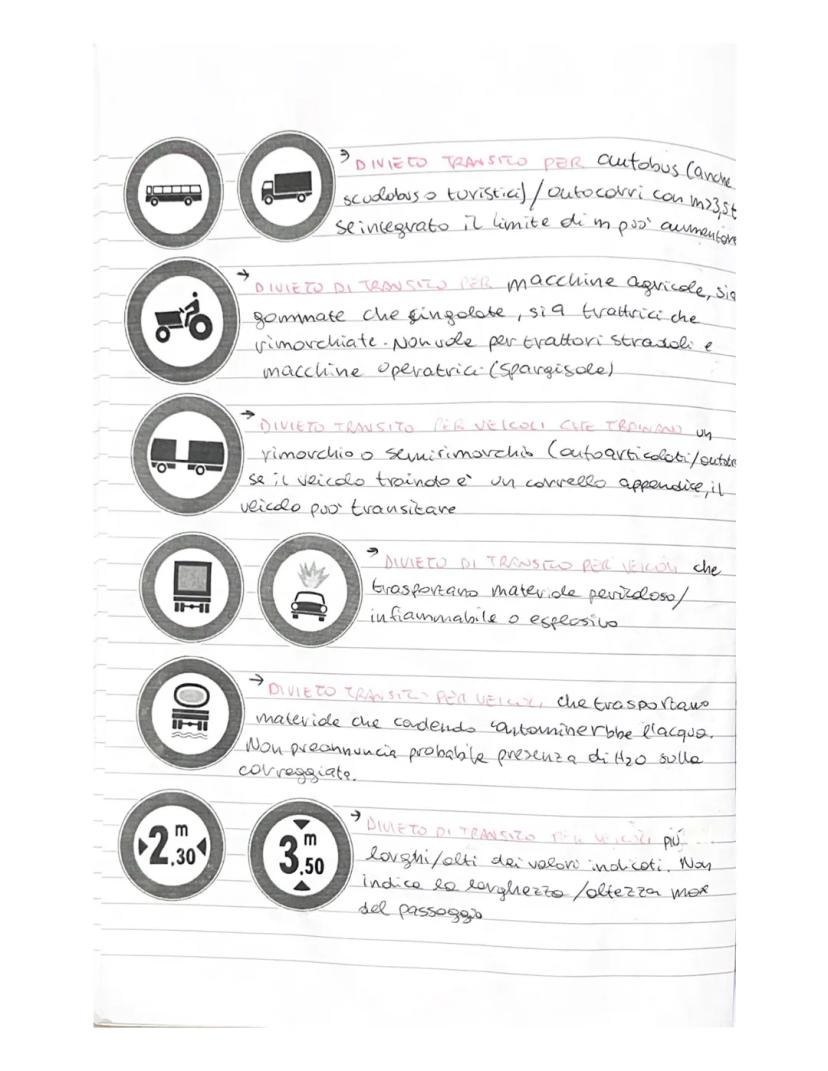 → DIVIETO TRANSITO PER autobus (anche
scuolabus o turistici) / autocarri con m>3,5t
se integrato il limite di m può aumentare
→ DIVIETO DI TRANSITO PER macchine agricole, sia
gommate che cingolate, sia trattrici che
rimorchiate. Non vale per trattori stradali e
macchine operatrici (spargisale)
→ DIVIETO TRANSITO PER VEICOLI CHE TRAINANO un
rimorchio o semirimorchio (autoarticolati/
se il veicolo traindo è un carrello appendice, il
veicolo può transitare
→ DIVIETO DI TRANSITO PER VEICOLI che
trasportano materiale pericoloso/
infiammabile o esplosivo
→ DIVIETO TRANSITO PER VEICOLI che trasportano
materiale che cadendo l'acqua.
Non preannuncia probabile presenza di H2O sulla
carreggiata.
2 m ,30
3 m ,50
→ DIVIETO DI TRANSITO PER VEICOLI più
larghi/alti dei valori indicati. Non
indica la larghezza/altezza max
del passaggio